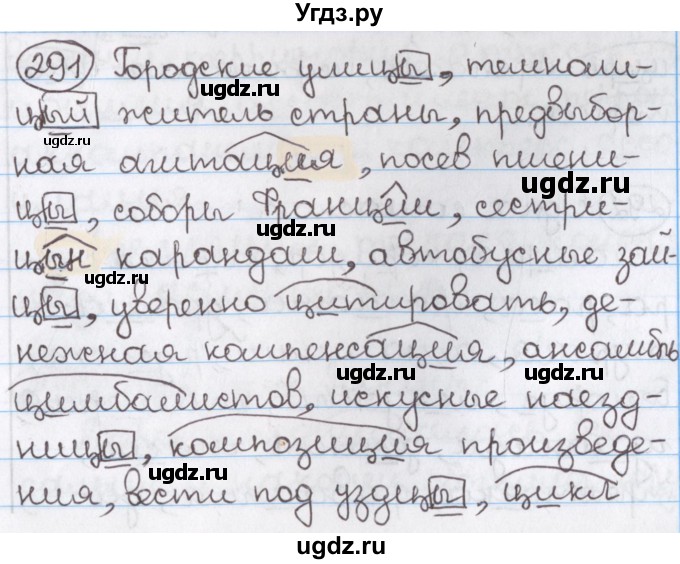 Угдз.ру
291 Городские улицы, темноли-
цый житель страны, предвыбор-
ная агитация, посев пшени-
цы, соборы Франции, сестри-
цын карандаш, автобусные зай-
цы, уверенно цитировать, де-
нежная компенсация, ансамбль
цимбалистов, искусные наезд-
ницы, композиция произведе-
ния, вести под уздцы, цикл
ugdz.ru
ugdz.ru
ugdz.ru
ugdz.ru
ugdz.ru
ugdz.ru
ugdz.ru
ugdz.ru
ugdz.ru
ugdz.ru
ugdz.ru
ugdz.ru